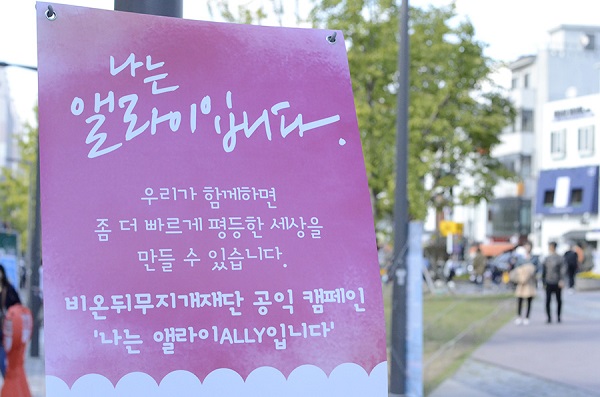 나는
앨라이입니다.
우리가 함께하면
좀 더 빠르게 평등한 세상을
만들 수 있습니다.
비온뒤무지개재단 공익 캠페인
'나는 앨라이ALLY입니다'